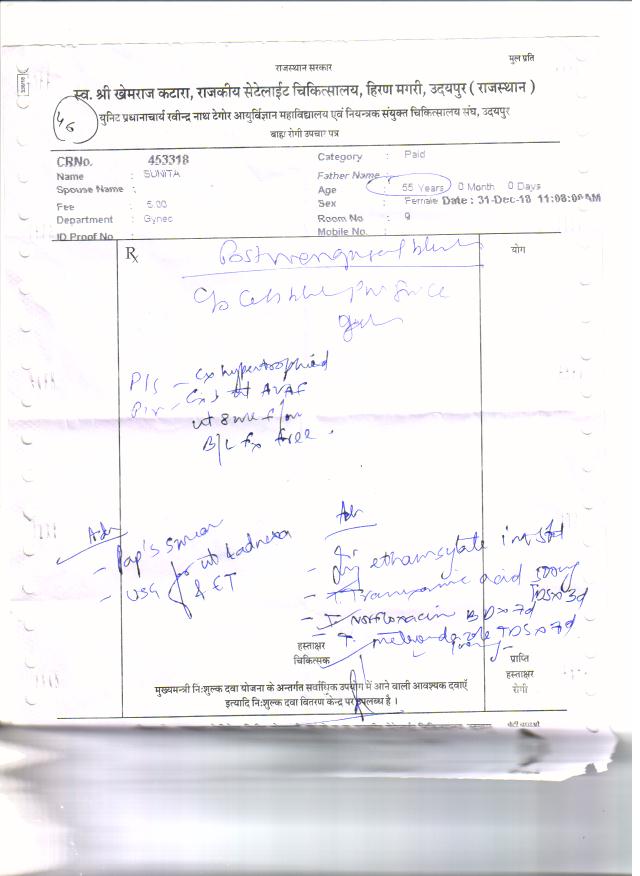 राजस्थान सरकार
मुल प्रति
स्व. श्री खेमराज कटारा, राजकीय सेटेलाईट चिकित्सालय, हिरण मगरी, उदयपुर ( राजस्थान )
यूनिट प्रधानाचार्य रवीन्द्र नाथ टेगोर आयुर्विज्ञान महाविद्यालय एवं नियन्त्रक संयुक्त चिकित्सालय संघ, उदयपुर
बाह्य रोगी उपचार पत्र
CRNo. 453318
Category : Paid
Name : SUNITA
Father Name :
Spouse Name :
Age : 55 Years 0 Month 0 Days
Fee : 5.00
Sex : Female Date : 31-Dec-18 11:08:00 AM
Department : Gynec
Room No : 9
ID Proof No
Mobile No. :
Rx
योग
P/S - Cx hypertrophied
P/V - Cx ut AVAF
ut 8 wk
B/L fx free.
Adv
- Pap's smear
- USG for ut & adnexa
& ET
Adv
- Inj ethamsylate
- T. Tranexamic acid 500mg
TDS x 3d
- T. Norfloxacin BD x 7d
T. metronidazole TDS x 7d
हस्ताक्षर
चिकित्सक
प्राप्ति
हस्ताक्षर
रोगी
मुख्यमन्त्री नि:शुल्क दवा योजना के अन्तर्गत सर्वाधिक उपयोग में आने वाली आवश्यक दवाएँ
इत्यादि नि:शुल्क दवा वितरण केन्द्र पर उपलब्ध है ।